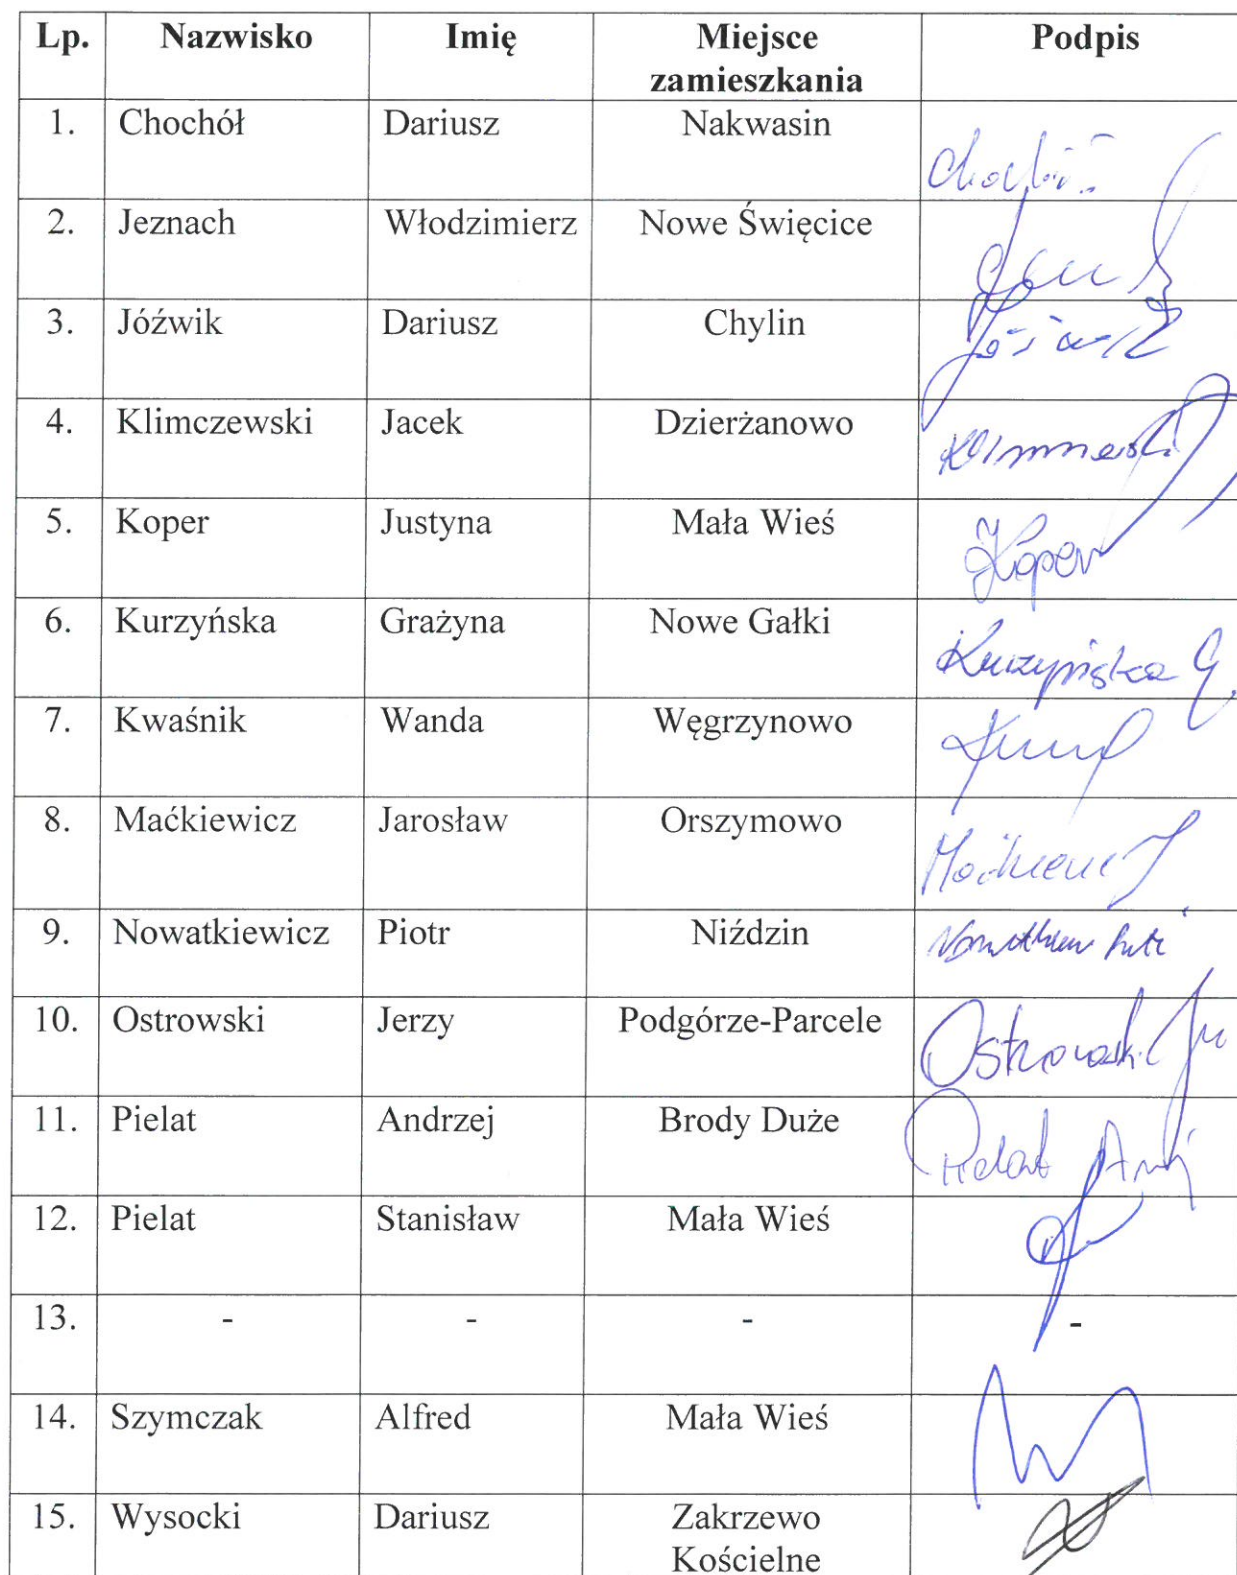 Lp. Nazwisko Imię Miejsce zamieszkania Podpis
1. Chochół Dariusz Nakwasin
2. Jeznach Włodzimierz Nowe Święcice
3. Jóźwik Dariusz Chylin
4. Klimczewski Jacek Dzierżanowo
5. Koper Justyna Mała Wieś Koper
6. Kurzyńska Grażyna Nowe Gałki Kurzyńska G.
7. Kwaśnik Wanda Węgrzynowo
8. Maćkiewicz Jarosław Orszymowo
9. Nowatkiewicz Piotr Niździn
10. Ostrowski Jerzy Podgórze-Parcele
11. Pielat Andrzej Brody Duże Pielat
12. Pielat Stanisław Mała Wieś
13. - - - -
14. Szymczak Alfred Mała Wieś
15. Wysocki Dariusz Zakrzewo
Kościelne